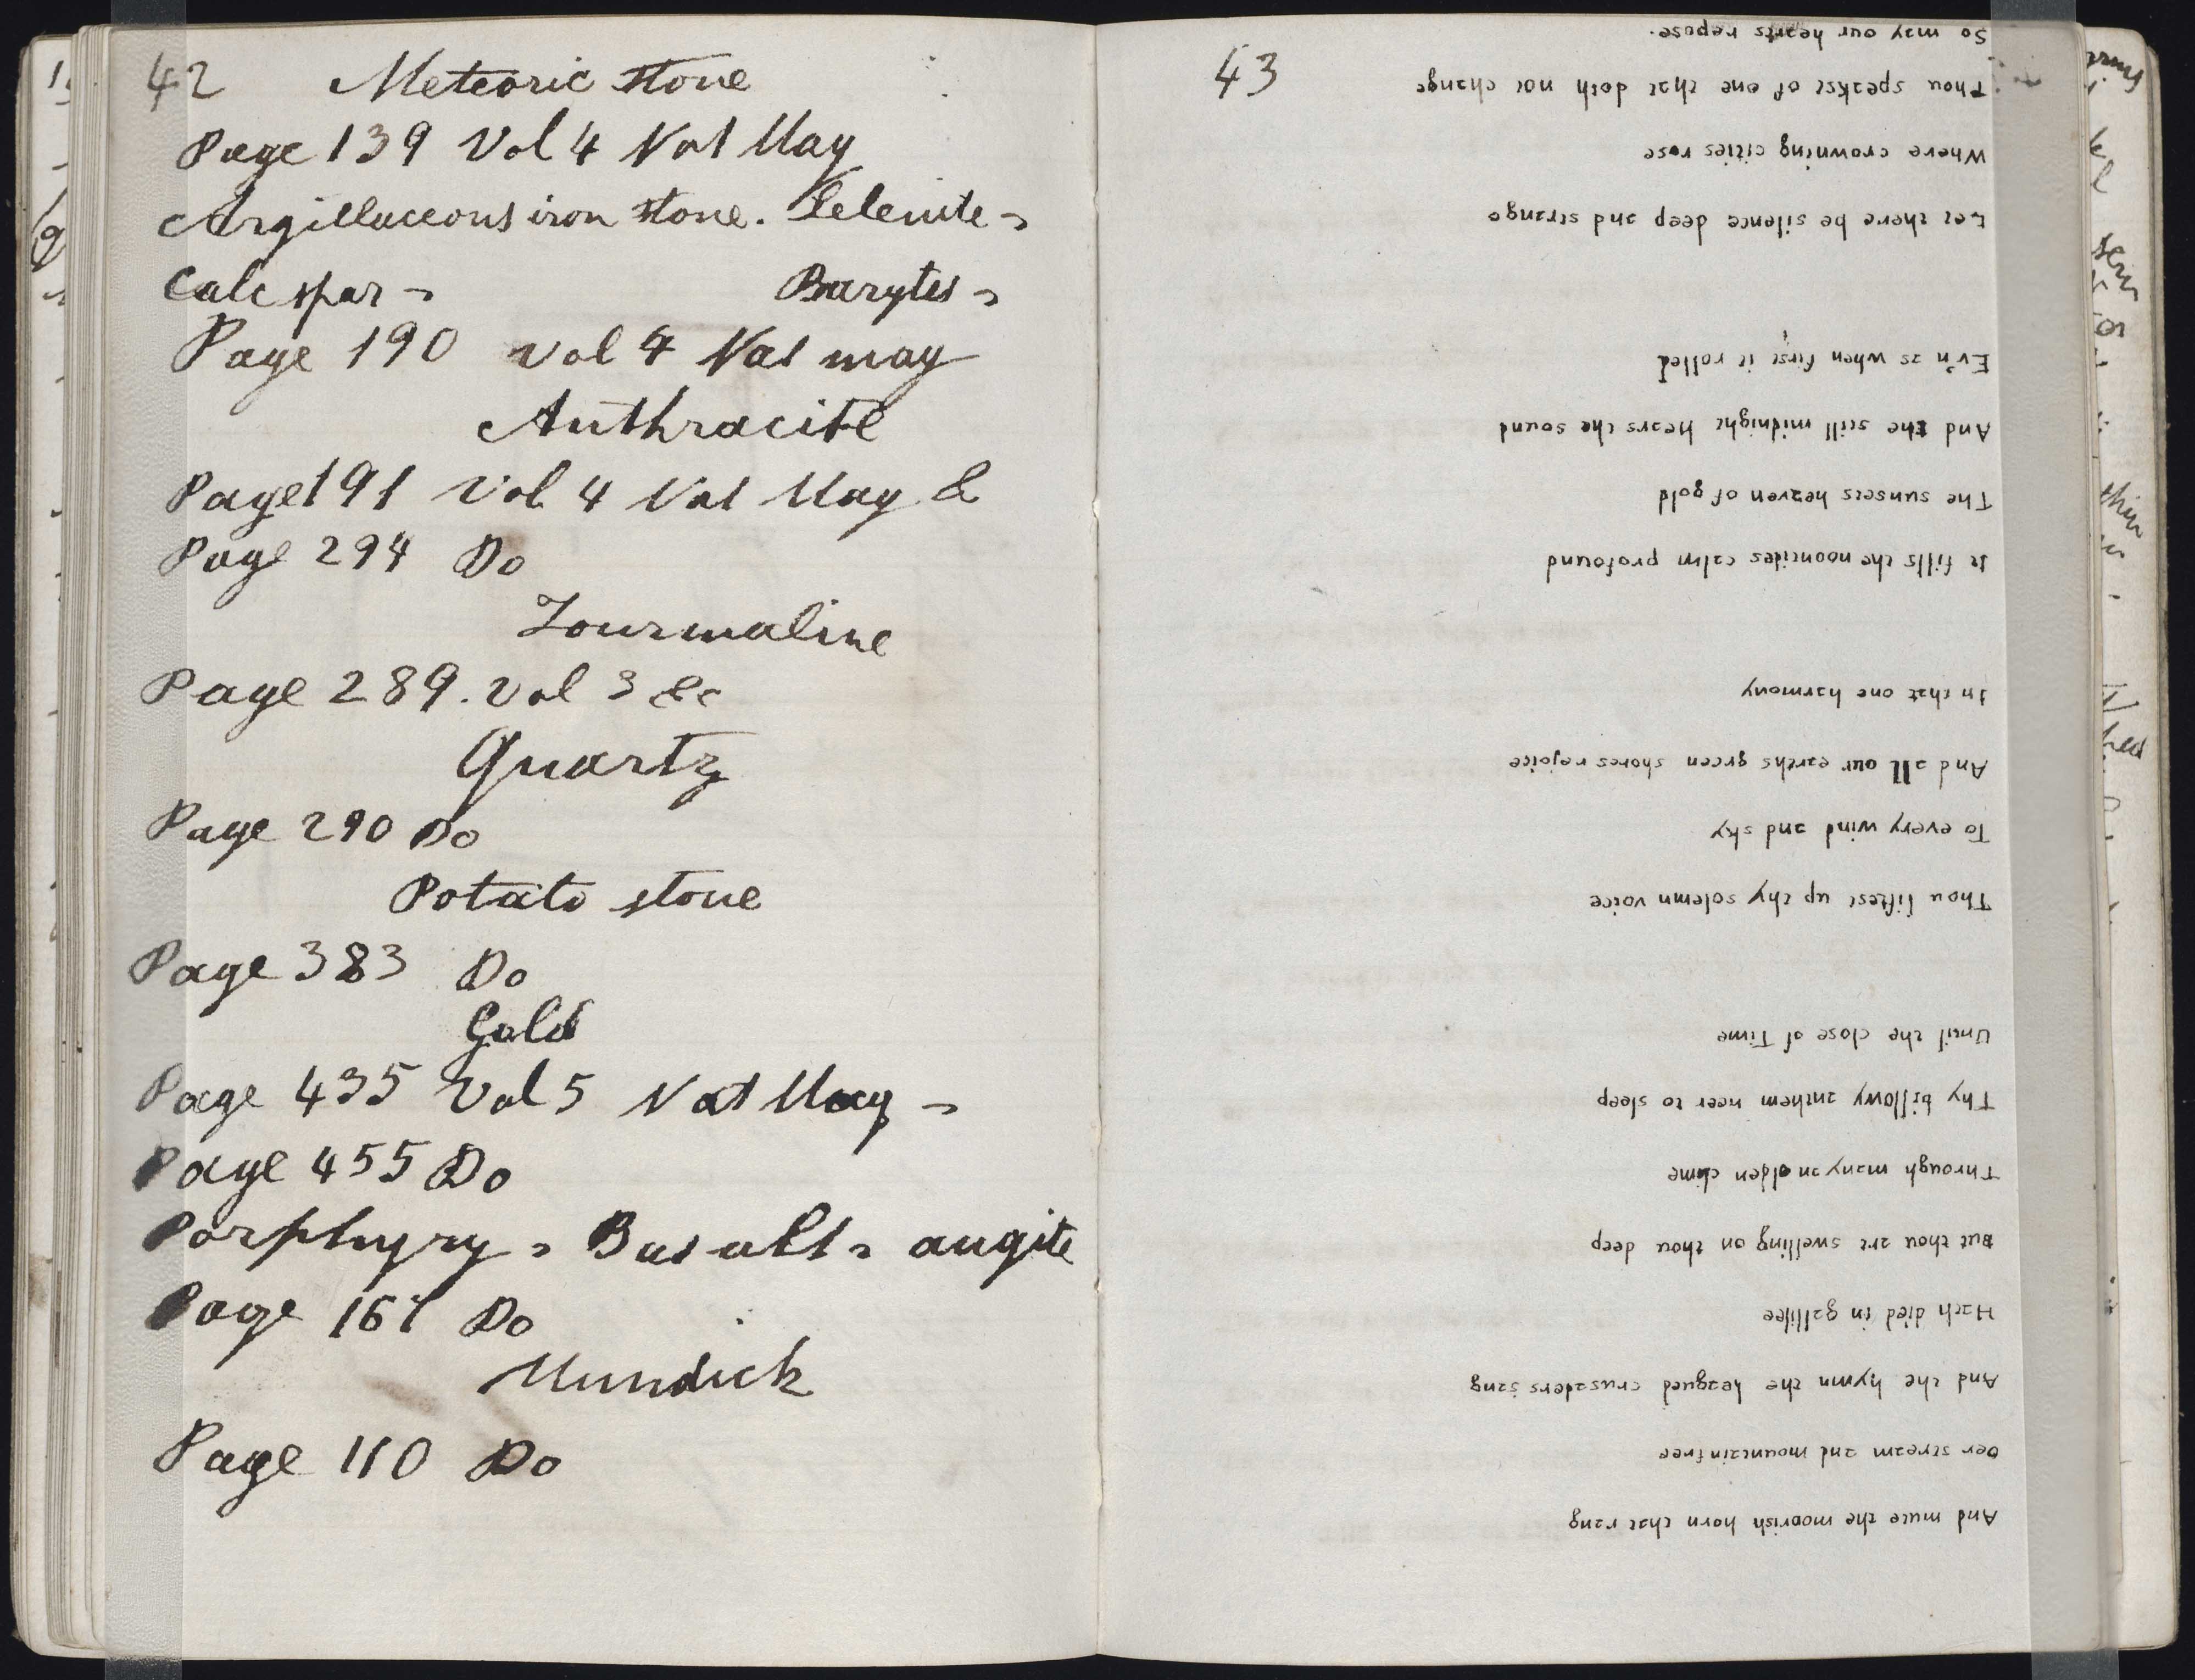 42 Meteoric stone
Page 139 Vol 4 Nat Mag
Argillaceous iron stone. Selenite -
Calc spar - Barytes -
Page 190 vol 4 Nat mag
Anthracite
Page 191 Vol 4 Nat Mag &
Page 294 Do
Tourmaline
Page 289. Vol 3 &c
Quartz
Page 290 Do
Potato stone
Page 383 Do
Gold
Page 435 Vol 5 Nat Mag -
Page 455 Do
Porphyry - Basalt - augite
Page 161 Do
Mundick
Page 110 Do
43
And mute the moorish horn that rang
Oer stream and mountain free
And the hymn the leagued crusaders sang
Hath died in gallilee
But thou art swelling on thou deep
Through many an olden clime
Thy billowy anthem neer to sleep
Until the close of Time
Thou liftest up thy solemn voice
To every wind and sky
And all our earths green shores rejoice
In that one harmony
It fills the noontides calm profound
The sunsets heaven of gold
And the still midnight hears the sound
Ev'n as when first it rolled
Let there be silence deep and strange
Where crowning cities rose
Thou speakst of one that doth not change
So may our hearts repose.